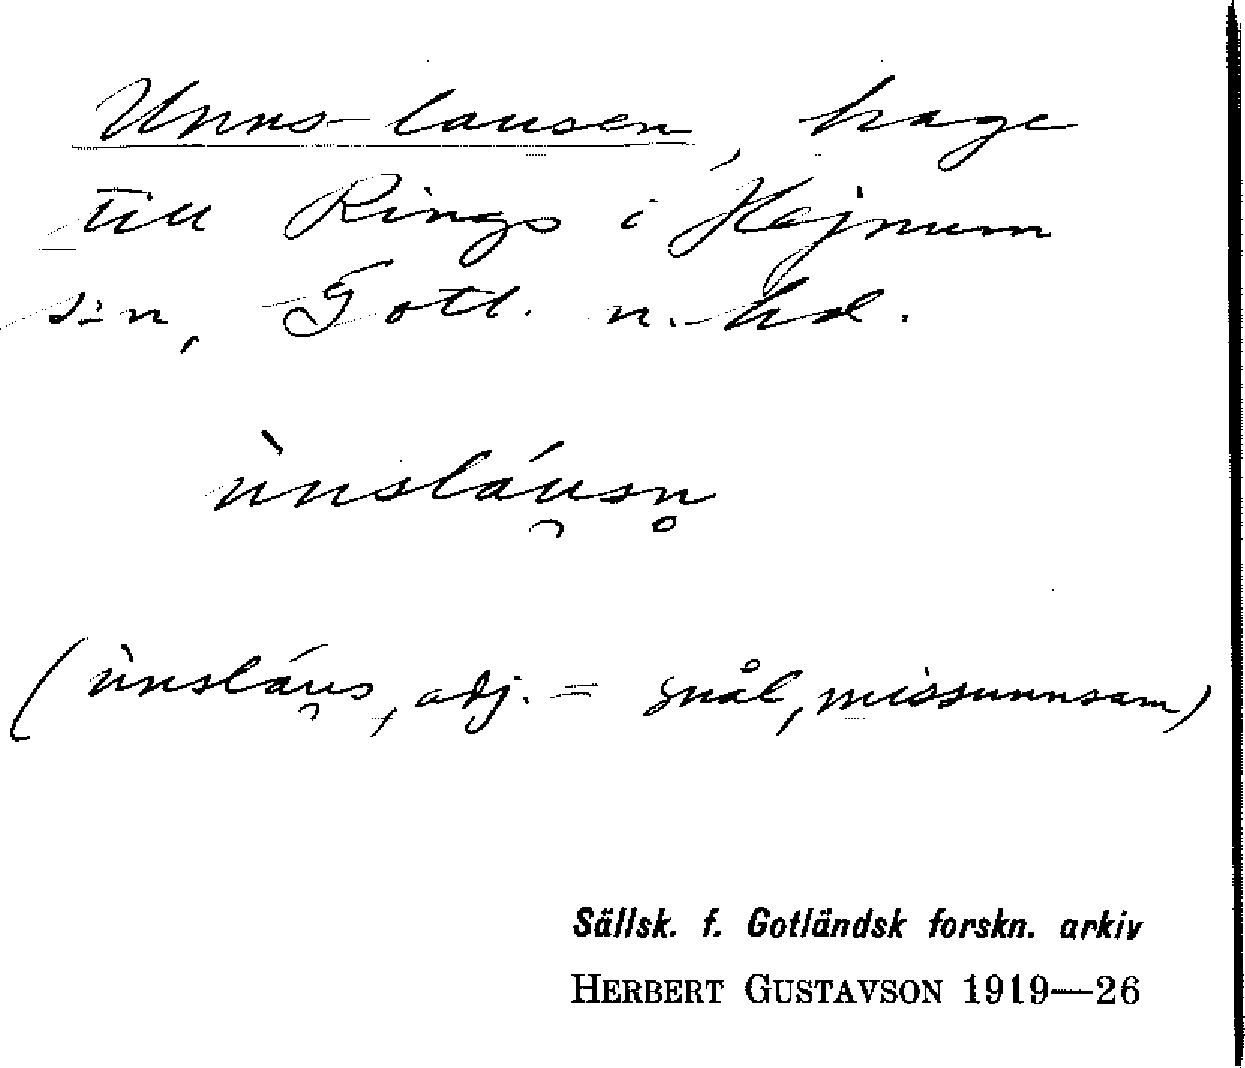 Unns-lausen, hage
till Rings i Hejnum
s:n, Gotl. n. hd.
ùnsláu̯sn̥
(ùnsláu̯s, adj. = snål, missunnsam)
Sällsk. f. Gotländsk forskn. arkiv
HERBERT GUSTAVSON 1919—26